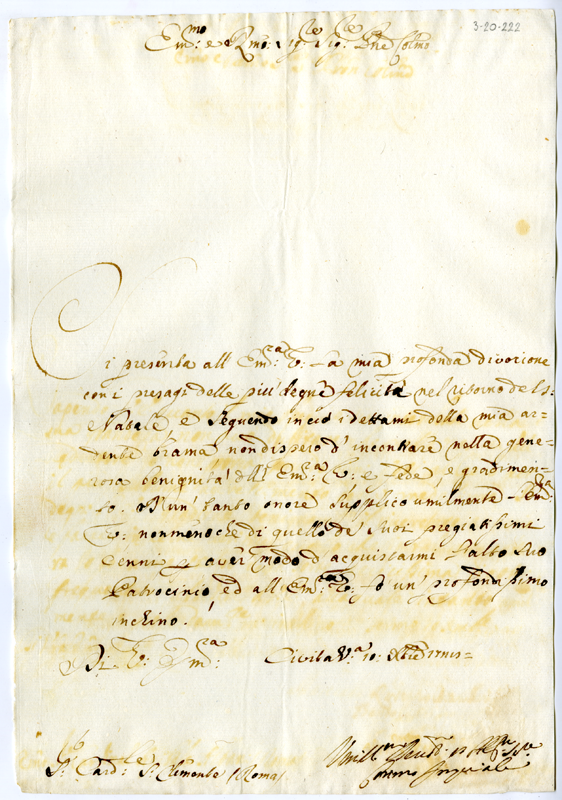 3-20-222
Em:mo e Rmo: Sig:re Sig:re Pne Colmo
Si presenta all' Em:za V: la mia profonda divozione
con i presagi delle più degne felicità nel ritorno del S:
Natale, e seguendo in ciò i dettami della mia ar-
dente brama non dispero d' incontrare nella gene-
rosa benignità dell' Em:za V: e fede, e gradimen-
to. D'un' tanto onore supplico umilmente l'Em:za
V: nonmeno che di quello de' suoi pregiatissimi
Cenni p aver modo d' acquistarmi l'alto suo
Patrocinio, ed all' Em:za V: fo un' profondissimo
inchino.
Di V: Em:za Civita V:a 10: Xbre
S:r Card:le S: Clemente (Roma)